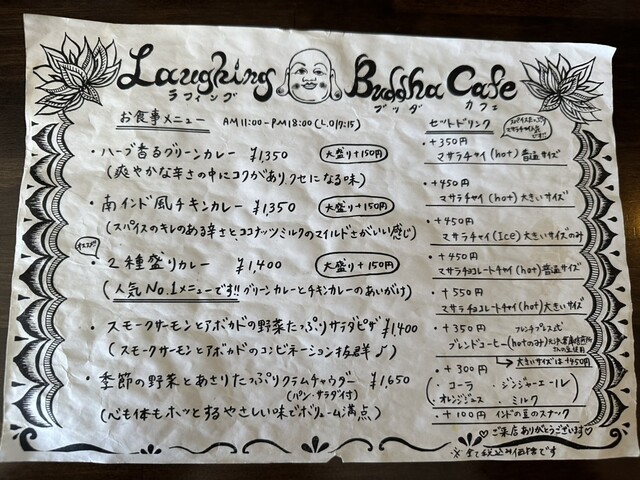 Laughing Buddha Cafe
ラフィング ブッダ カフェ
お食事メニュー AM11:00-PM18:00 (L.O17:15)
・ハーブ香るグリーンカレー ¥1,350 大盛り+150円
(爽やかな辛さの中にコクがありクセになる味)
・南インド風チキンカレー ¥1,350 大盛り+150円
(スパイスのキレのある辛さとココナッツミルクのマイルドさがいい感じ)
オススメ!!
・2種盛りカレー ¥1,400 大盛り+150円
(人気No.1メニューです!! グリーンカレーとチキンカレーのあいがけ)
・スモークサーモンとアボカドの野菜たっぷりサラダピザ ¥1,400
(スモークサーモンとアボカドのコンビネーション抜群♪)
・季節の野菜とあさりたっぷりクラムチャウダー ¥1,650
(パン・サラダ付)
(心も体もホッとするやさしい味でボリューム満点)
セットドリンク
マサラチャイ
です!!
・+350円
マサラチャイ(hot)普通サイズ
・+450円
マサラチャイ(hot)大きいサイズ
・+450円
マサラチャイ(Ice)大きいサイズのみ
・+450円
マサラチョコレートチャイ(hot)普通サイズ
・+550円
マサラチョコレートチャイ(hot)大きいサイズ
・+350円 フレンチプレス式
ブレンドコーヒー(hotのみ)
大きいサイズは+450円
・+300円
・コーラ ・ジンジャーエール
・オレンジジュース ・ミルク
・+100円 インドの豆のスナック
♡ご来店ありがとうございます♡
※全て税込み価格です